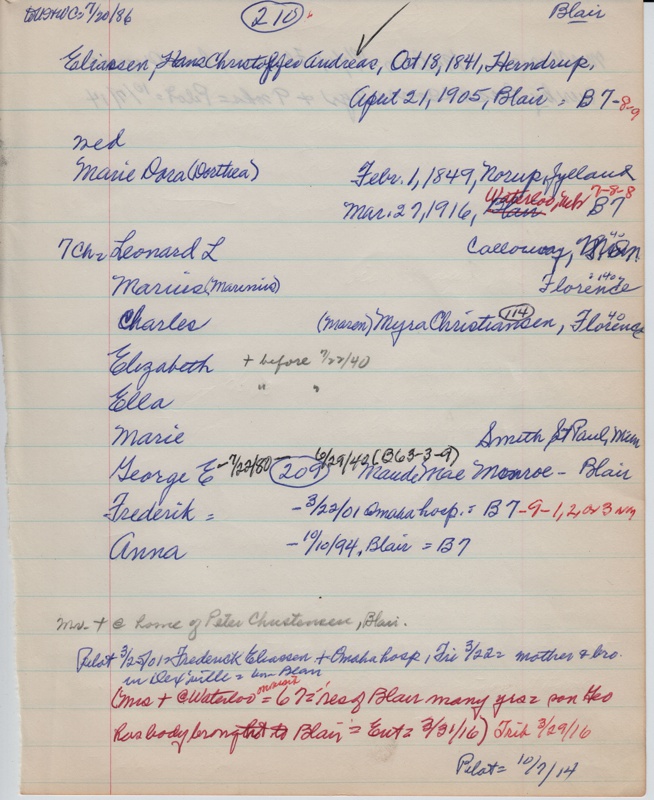 7/20/86 210 Blair
Eliassen, Hans Christoffer Andreas, Oct 18, 1841, Herndrup,
April 21, 1905, Blair = B7-8-9
wed
Marie Dora (Dorthea) Febr. 1, 1849, Norup, Jylland
Mar. 27, 1916, Blair Waterloo, Neb B7 7-8-8
7 Ch = Leonard L Calloway,
Marius (Marinus) Florence
Charles (Maren) Myra Christiansen, 114 Florence 40
Elizabeth + before 7/22/40
Ella " "
Marie Smith St Paul, Minn
George E - 7/22/80 - 209 6/29/42 (B63-3-9) Maude Mae Monroe - Blair
Frederik = - 3/22/01 Omaha hosp. = B7-9-1, 2, or 3 NM
Anna - 10/10/94, Blair = B7
Mr. + @ home of Peter Christensen, Blair.
Pilot 3/25/01 = Frederick Eliassen + Omaha hosp, Fri 3/22 = mother & bro.
in = Blair
(Mrs + @ Waterloo = 67 = res of Blair many yrs = son Geo
has body brought to Blair = Ent = 3/31/16) Trib 3/29/16
Pilot = 10/7/14